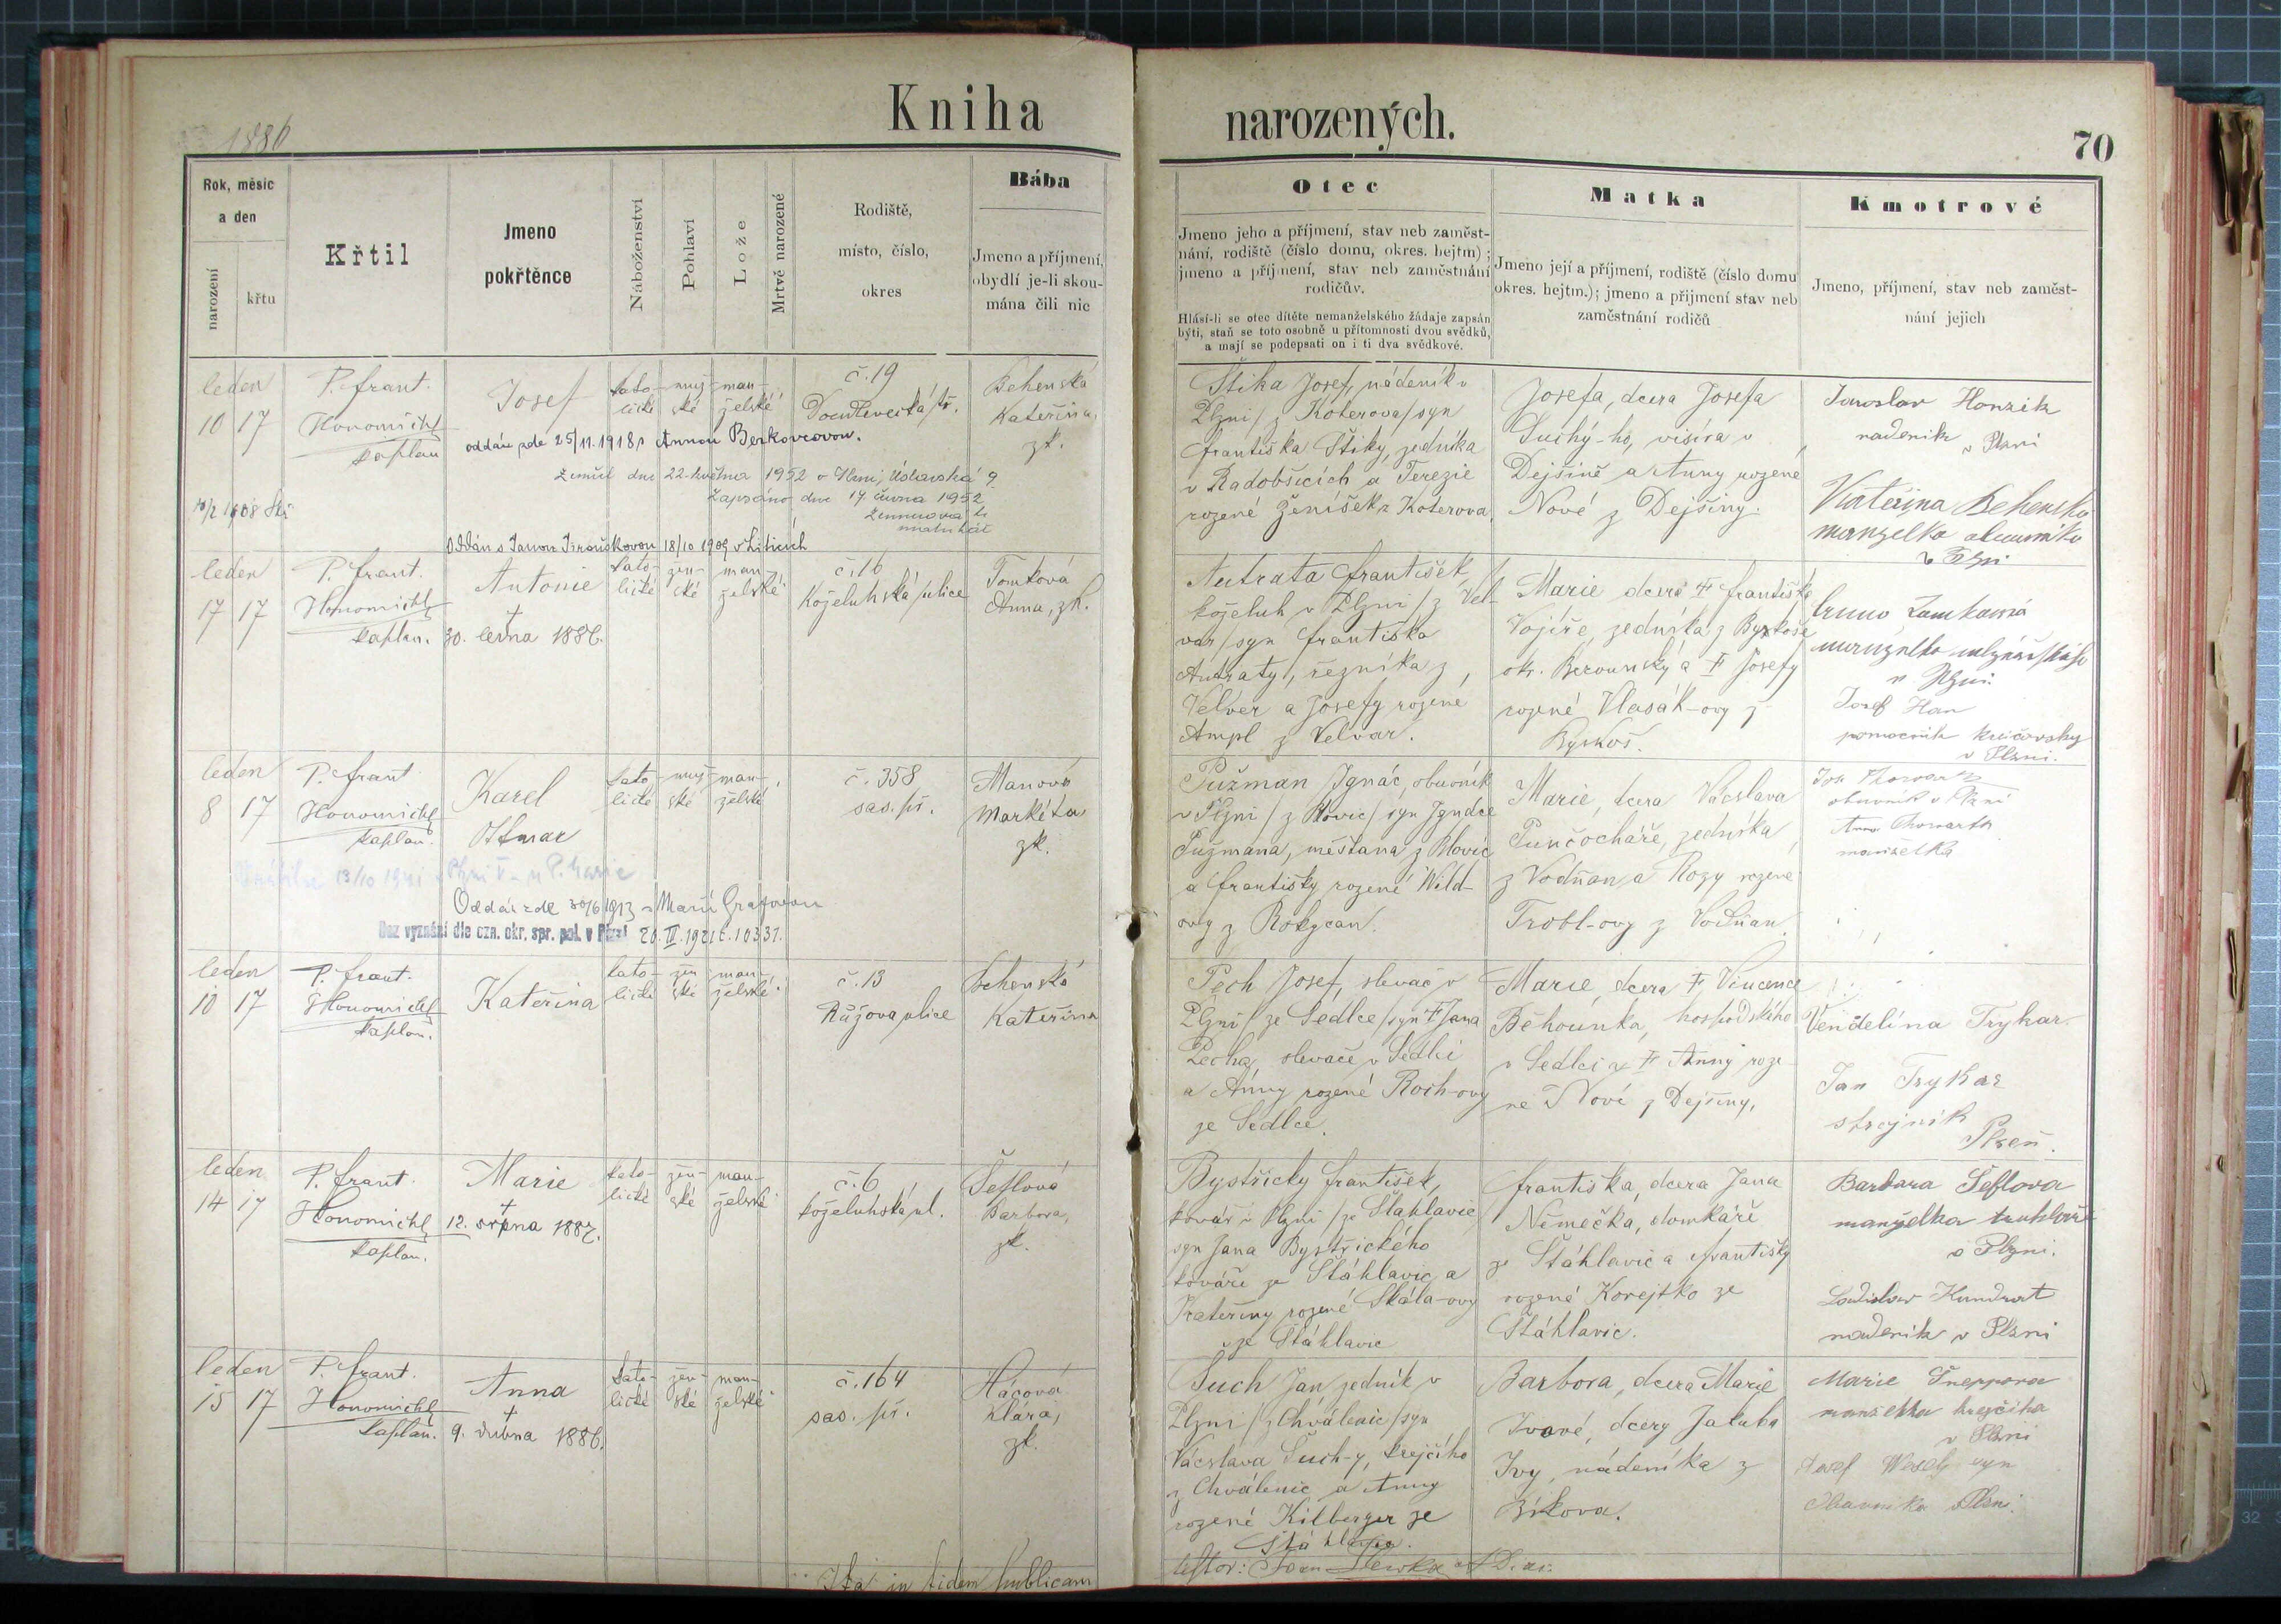 Kniha
narozených.
1886
70
Rok, měsíc
a den
narození
křtu
Křtil
Jmeno
pokřtěnce
Náboženství
Pohlaví
Lože
Mrtvě narozené
Rodiště,
místo, číslo,
okres
Bába
Jmeno a příjmení,
obydlí je-li skou-
mána čili nic
Otec
Jmeno jeho a příjmení, stav neb zaměst-
nání, rodiště (číslo domu, okres. hejtm) ;
jmeno a příjmení, stav neb zaměstnání
rodičův.
Hlásí-li se otec dítěte nemanželského žádaje zapsán
býti, staň se toto osobně u přítomnosti dvou svědků,
a mají se podepsati on i ti dva svědkové.
Matka
Jmeno její a příjmení, rodiště (číslo domu
okres. hejtm.); jmeno a přijmení stav neb
zaměstnání rodičů
Kmotrové
Jmeno, příjmení, stav neb zaměst-
nání jejich
leden
10 17
P. Frant.
Honomichl
kaplan
Josef
kato-
lické
muž-
ské
man-
želské
č. 19
Doudlevecká tř.
Behenská
Kateřina,
zk.
oddán zde 25/11.1918 s Annou Berkovcovou.
Zemřel dne 22. května 1952 v Plzni, Úslavská 9.
Zapsáno dne 17. června 1952
Štika Josef, nádeník v
Plzni / z Koterova / syn
Františka Štiky, zedníka
v Radobšicích a Terezie
rozené Ženíšek z Koterova
Josefa, dcera Josefa
Suchý-ho, visíra v
Dejšině a Anny rozené
Nové z Dejšiny.
Jaroslav Honzik
nadenik
v Plzni
Kateřina Behenská
manzelka
v Plzni
Oddán s Janou Krauskovou 18/10 1909 v Liticích
leden
17 17
P. Frant.
Honomichl
kaplan.
Antonie
†
30. ledna 1886.
kato-
lické
žen-
ské
man-
želské
č. 16
Koželuhská ulice
Tomková
Anna, zk.
Autrata František,
koželuh v Plzni / z Vel-
var / syn Františka
Autraty, řezníka z
Velver a Josefy rozené
Ampl z Velvar.
Marie dcera † Františka
Vojíře, zedníka z Byskoše
okr. Berounský a † Josefy
rozené Vlasák-ovy z
Byskoš.
v Plzni
Josef Han
pomocník krejčovský
v Plzni.
leden
8 17
P. Frant.
Honomichl
kaplan.
Karel
Ottmar
kato-
lické
muž-
ské
man-
želské
č. 358
sas. př.
Manová
Markéta
zk.
Oddán zde 30/6 1913 s Marií Grafovou
Bez vyznání dle ozn. okr. spr. pol. v Plzni 20. IV. 1921 č. 10331.
Pužman Ignác, obuvník
v Plzni / z Blovic / syn Ignáce
Pužmana, měšťana z Blovic
a Františky rozené Wild-
ovy z Rokycan.
Marie, dcera Václava
Punčocháře, zedníka
z Vodňan a Rozy rozené
Trobl-ovy z Vodňan.
obuvník v Plzni
Anna
manzelka
leden
10 17
P. Frant.
Honomichl
kaplan.
Kateřina
kato-
lické
žen
ské
man-
želské
č. 13
Růžova ulice
Behenská
Kateřina
Pech Josef, slevač v
Plzni / ze Sedlce / syn † Jana
Pecha, slevače v Sedlci
a Anny rozené Roch-ovy
ze Sedlce.
Marie, dcera † Vincence
Běhounka, hospodského
v Sedlci a † Anny roze-
né Nové z Dejšiny.
Vendelína Trykar
Jan Trykar
strojník
Plzeň.
leden
14 17
P. Frant.
Honomichl
kaplan.
Marie
†
12. srpna 1887.
kato-
lické
žen-
ské
man-
želské
č. 6
koželuhská ul.
Šeflová
Barbora,
zk.
Bystřický František,
kovář v Plzni / ze Štáhlavic
syn Jana Bystřického
kováře ze Štáhlavic a
Kateřiny rozené Skála-ovy
ze Štáhlavic
Františka, dcera Jana
Němečka, domkáře
ze Štáhlavic a Františky
rozené Korejtko ze
Štáhlavic.
Barbara Šeflova
manželka truhlaře
v Plzni.
Ladislav Kundrat
nadenik v Plzni
leden
15 17
P. Frant.
Honomichl
kaplan.
Anna
†
9. dubna 1886.
kato-
lické
žen-
ské
man-
želské
č. 164
sas. př.
Hácová
Klára,
zk.
Such Jan zedník v
Plzni / z Chválenic / syn
Václava Such-y, krejčího
z Chválenic a Anny
rozené Kilberger ze
Štáhlavic.
Barbora, dcera Marie
Ivové, dcery Jakuba
Ivy, nádeníka z
Bíkova.
Marie
manzelka krejčiho
v Plzni
Josef Wesely syn
v Plzni.
Ita in fidem publicam
testor: